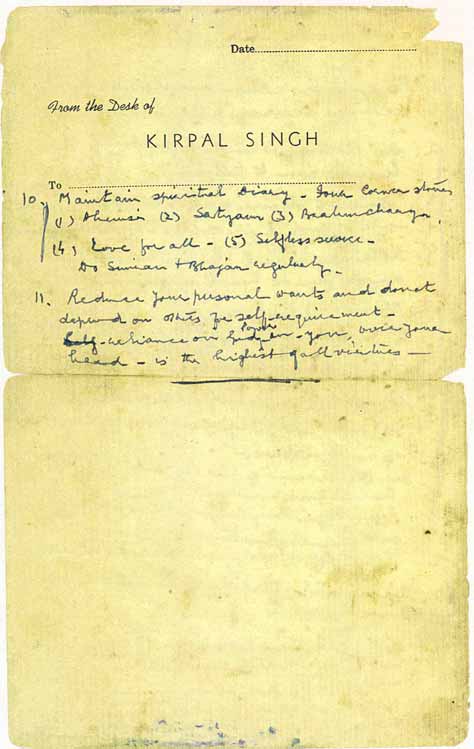 Date
From the Desk of
KIRPAL SINGH
To
10. Maintain spiritual Diary - Four Corner stones
(1) Ahimsa (2) Satyam (3) Brahmcharya,
(4) Love for all - (5) Selfless service -
Do Simran + Bhajan regularly.
11. Reduce your personal wants and do not
depend on others for self-requirement -
reliance on God Power in - you, over your
head - is the highest of all virtues -